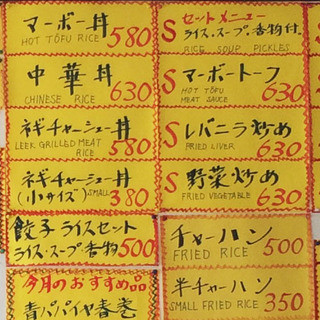 マーボー丼
HOT TOFU RICE 580
中華丼
CHINESE RICE 630
ネギチャーシュー丼
LEEK GRILLED MEAT RICE 580
ネギチャーシュー丼
(小サイズ) SMALL 380
餃子ライスセット
ライス・スープ香物 500
今月のおすすめ品
青パパイヤ春巻
S セットメニュー
ライス、スープ、香物付
RICE SOUP PICKLES
S マーボートーフ
HOT TOFU
MEAT SAUCE 630
S レバニラ炒め
FRIED LIVER 630
S 野菜炒め
FRIED VEGETABLE 630
チャーハン
FRIED RICE 500
半チャーハン
SMALL FRIED RICE 350